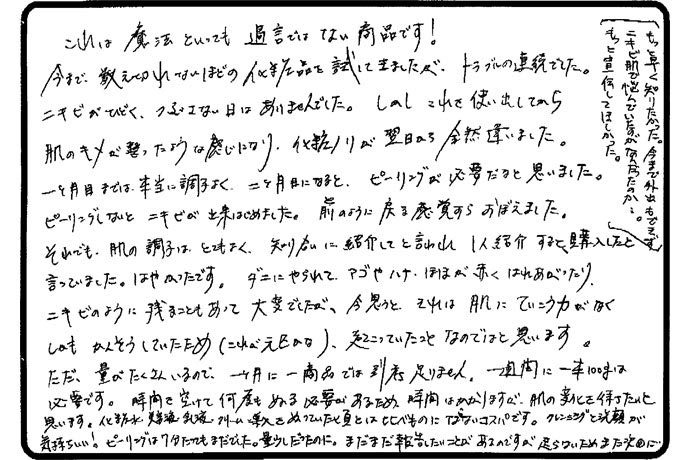 これは魔法といっても過言ではない商品です！
今まで、数えきれないほどの化粧品を試して来ましたが、トラブルの連続でした。
ニキビがひどく、つぶさない日はありませんでした。しかしこれを使い出してから
肌のキメが整ったような感じになり、化粧ノリが翌日から全然違いました。
一ヶ月目までは本当に調子よく、二ヶ月目になると、ピーリングが必要だなと思いました。
ピーリングしないとニキビが出来はじめました。前のように戻る感覚すらおぼえました。
それでも、肌の調子はとてもよく、知り合いに紹介してと言われ1人紹介すると、購入したと
言っていました。はやかったです。ダニにやられて、アゴやハナ・ほほが赤くはれあがったり、
ニキビのように残ることもあって大変でしたが、今思うと、それは肌にていこう力がなく
しかもかんそうしていたため（これが元凶かな）、起こっていたことなのではと思います。
ただ、量がたくさんいるので、一ヶ月に一商品では到底足りません。一週間に一本100gは
必要です。時間を空けて何度もぬる必要があるため時間はかかりますが、肌の変化を待ったいと
思います。化粧水・乳液・クリーム・をぬっていた頃とはくらべものにならないコスパです。クレンジングと洗顔が
気持ちいい！ピーリングは7分たってもまだでした。量少しだったのに。まだまだ報告したいことがあるのですが足らないためまた次回に
もっと早く知りたかった。今まで外出もできず
ニキビ肌で悩んでいたのが何だったのか…。
もっと宣伝してほしかった。